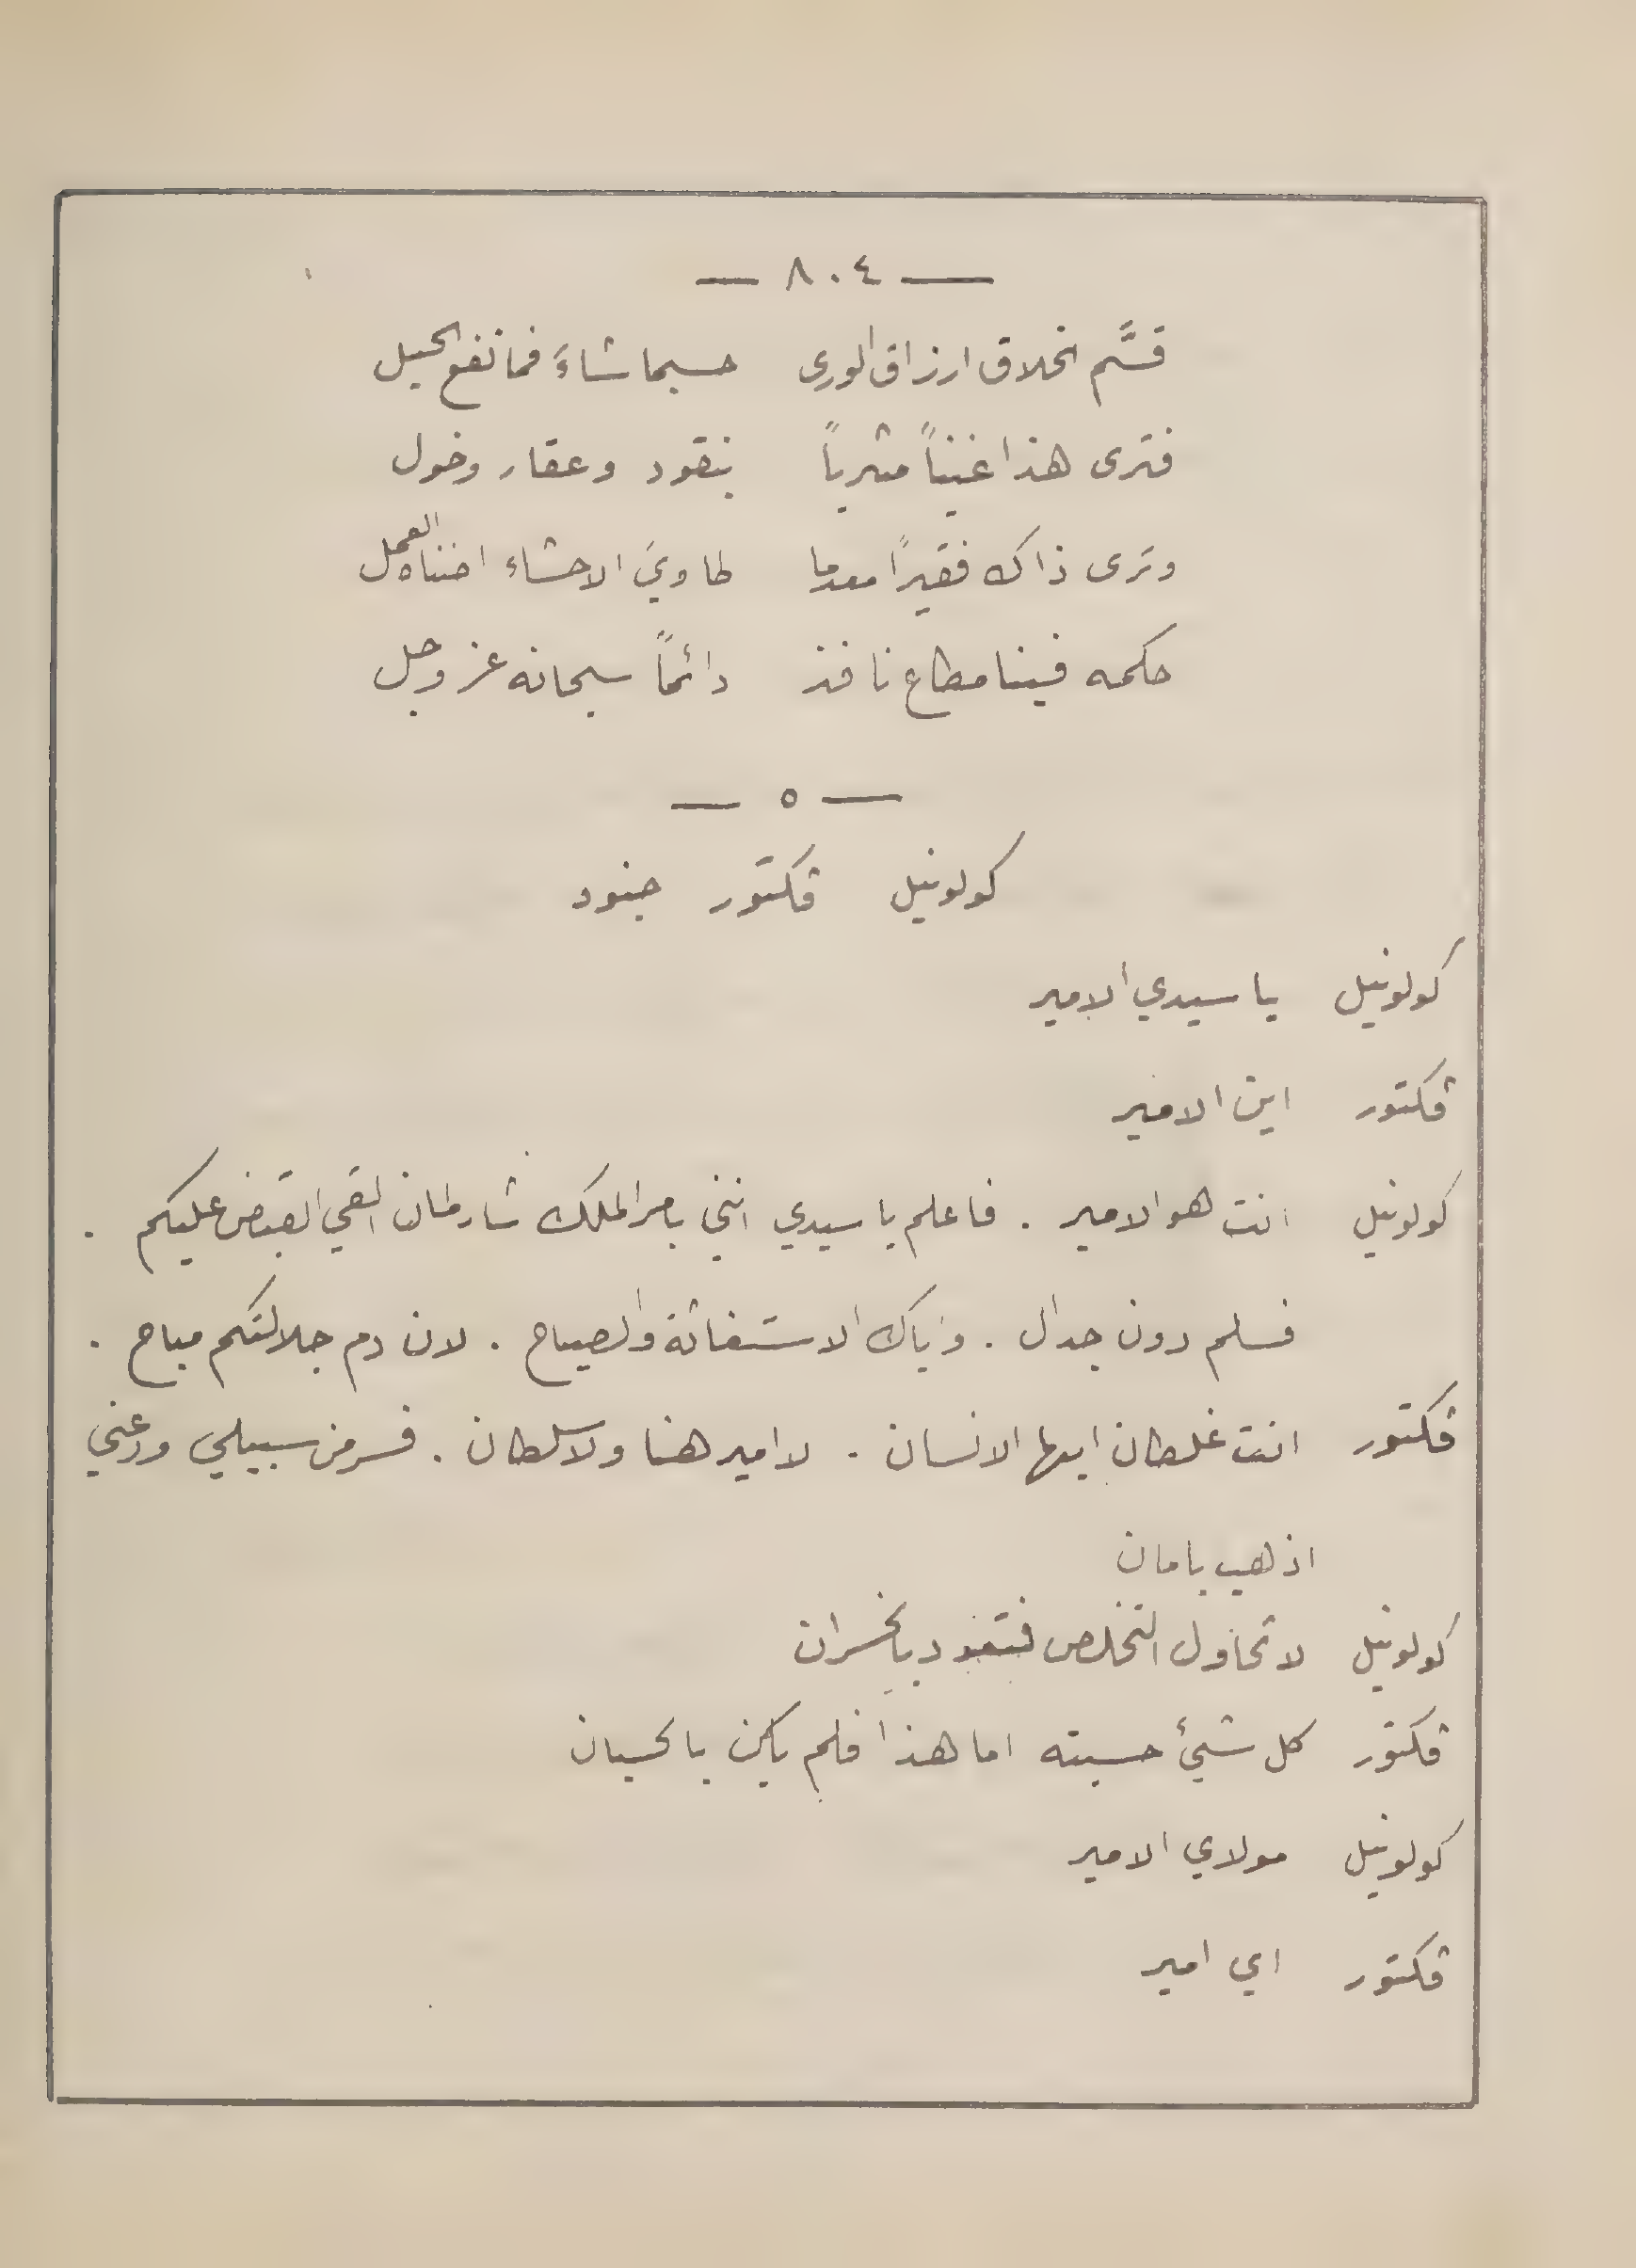 — ٨٠٤ —
قسَّم الخلاق ارزاق الورى حسبما شاءَ فما نفع الحيل
فترى هذا غنياً مثرياً بنقود وعقار وخول
وترى ذاك فقيراً معدما طاويَ الاحشاء اضناه العمل
حكمه فينا مطاع نافذ دائماً سبحانه عز وجل
— ٥ —
كولونيل ڤكتور جنود
كولونيل يا سيدي الامير
ڤكتور اين الامير
كولونيل انت هو الامير . فاعلم يا سيدي انني بامر الملك شارلمان القي القبض عليكم .
فسلم دون جدال . واياك الاستغاثة والصياح . لان دم جلالتكم مباح .
ڤكتور انت غلطان ايها الانسان . لا امير هنا ولا سلطان . فسر من سبيلي ودعني
اذهب بامان
كولونيل لا تحاول التخلص فتعود بالخسران
ڤكتور كل شيء حسبته اما هذا فلم يكن بالحسبان
كولونيل مولاي الامير
ڤكتور اي امير